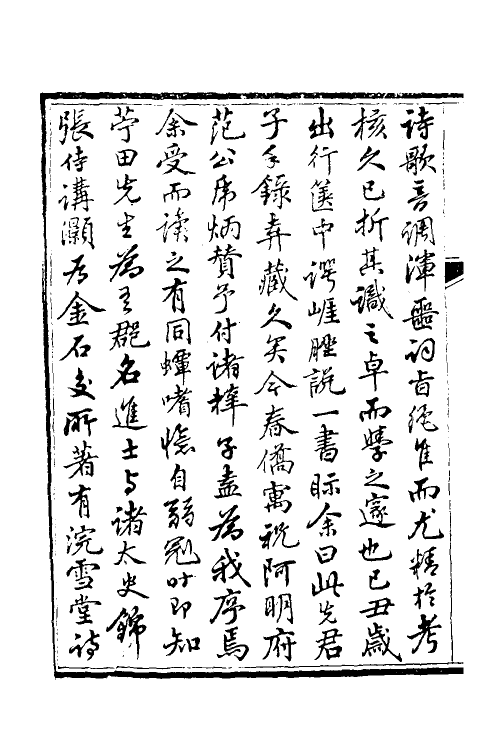 詩歌音調渾噩詞旨而尤精於考
核久已折其識之卓而學之邃也己丑歲
出行篋中諤崕脞說一書眎余曰此先君
子手錄弆藏久矣今春僑寓祝阿明府
范公席炳贊予付諸梓子盍為我序焉
余受而讀之有同蟫嗜憶自弱冠時即知
苧田先生為吾郡名進士与諸太史錦
張侍講灝為金石交所著有浣雪堂詩